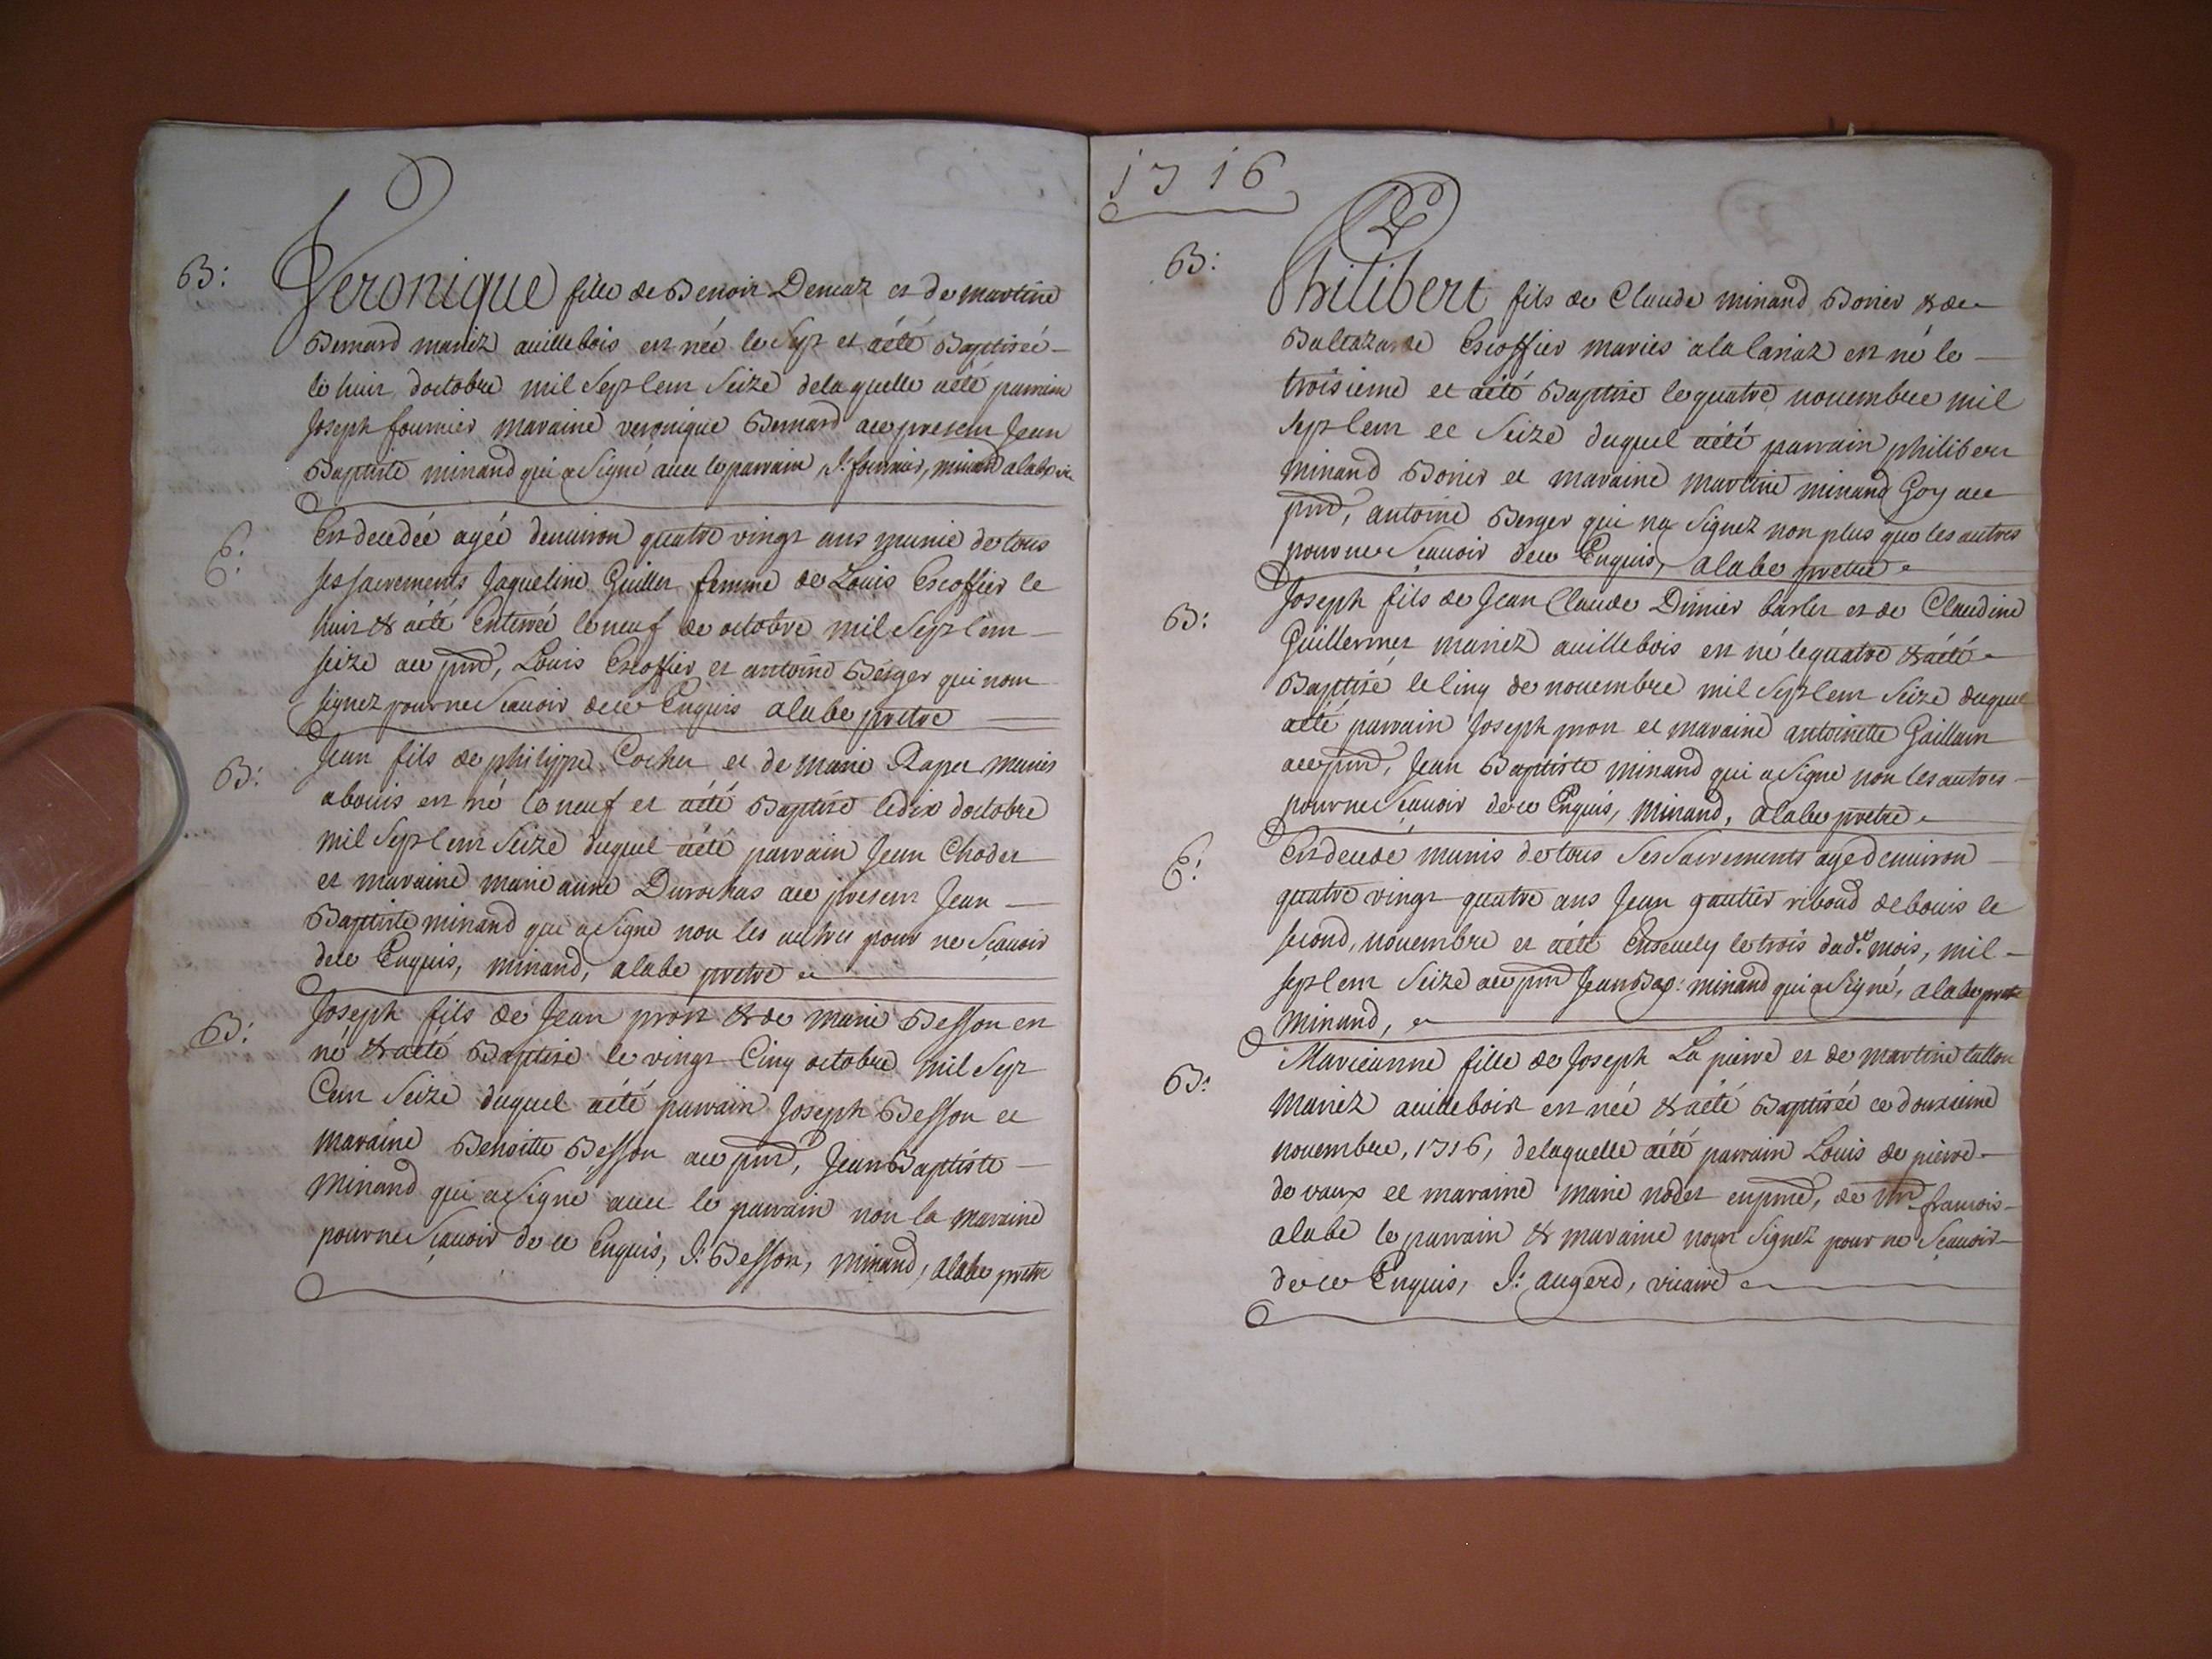 B: Veronique fille de Benoit Demaz et de martine
Bernard mariez auillebois est née le Sept et aété Baptiseé
le huit doctobre mil Sept cent Seize delaquelle aété parrain
Joseph fournier maraine veronique Bernard ace present Jean
Baptiste minand qui a Signé auec le parrain, J: fournier, minand alabe
E: Est decedeé ageé denuiron quatre vingt ans munie de tous
ses sacrements Jaqueline Guillet femme de Louis Escoffier le
huit & aété Enterreé le neuf de octobre mil Sept cent
seize ace pnt, Louis Escoffier et antoine Berger qui nont
signez pour ne Scauoir dece Enquis alabe pretre
B: Jean fils de philippe Cochet et de marie Rapet mariés
abouis est né le neuf et aété Baptisé le dix doctobre
mil Sept cent Seize duquel aété parrain Jean Chodet
et maraine marie anne Durochas ace present Jean
Baptiste minand qui a Signé non les autres pour ne Sçauoir
dece Enquis, minand, alabe pretre
B: Joseph fils de Jean pront & de marie Besson est
né & aété Baptisé le vingt Cinq octobre mil Sept
Cent Seize duquel aété parrain Joseph Besson et
maraine Benoitte Besson ace pnt, Jean Baptiste
minand qui a Signé auec le parrain non la maraine
pour ne Sçauoir de ce Enquis, J: Besson, minand, alabe pretre
1716
B: Philibert fils de Claude minand Borier & de
Baltazarde Escoffier mariés a la lariaz est né le
troisieme et aété Baptisé le quatre nouembre mil
Sept cent et Seize duquel aété parrain philibert
minand Borier et maraine martine minand Goy ace
pnt, antoine Berger qui na Signez non plus que les autres
pour ne Scauoir dece Enquis, alabe pretre
B: Joseph fils de Jean Claude Dimier barlet et de Claudine
Guillermet mariez auillebois est né le quatre & aété
Baptisé le Cinq de nouembre mil Sept cent Seize duquel
aété parrain Joseph pront et maraine antoinette Gaillard
ace pnt, Jean Baptiste minand qui a Signe non les autres
pour ne Sçauoir dece Enquis, minand, alabe pretre
E: Est decedé munis de tous Ses Sacrements agé denuiron
quatre vingt quatre ans Jean gautier riboud de bouis le
second, nouembre et aété Enseuely le trois dud.t mois, mil
sept cent Seize ace pnt Jean Bap: minand qui a Signé, alabe pretre
minand,
B: Marieanne fille de Joseph La pierre et de martine tallon
mariez auillebois est née & aété Baptiseé ce douzieme
nouembre, 1716, delaquelle aété parrain Louis de pierre
de vaux et maraine marie nodet en pnce, de Mr francois
alabe le parrain & maraine nont Signez pour ne Sçauoir
dece Enquis, J: augerd, vicaire